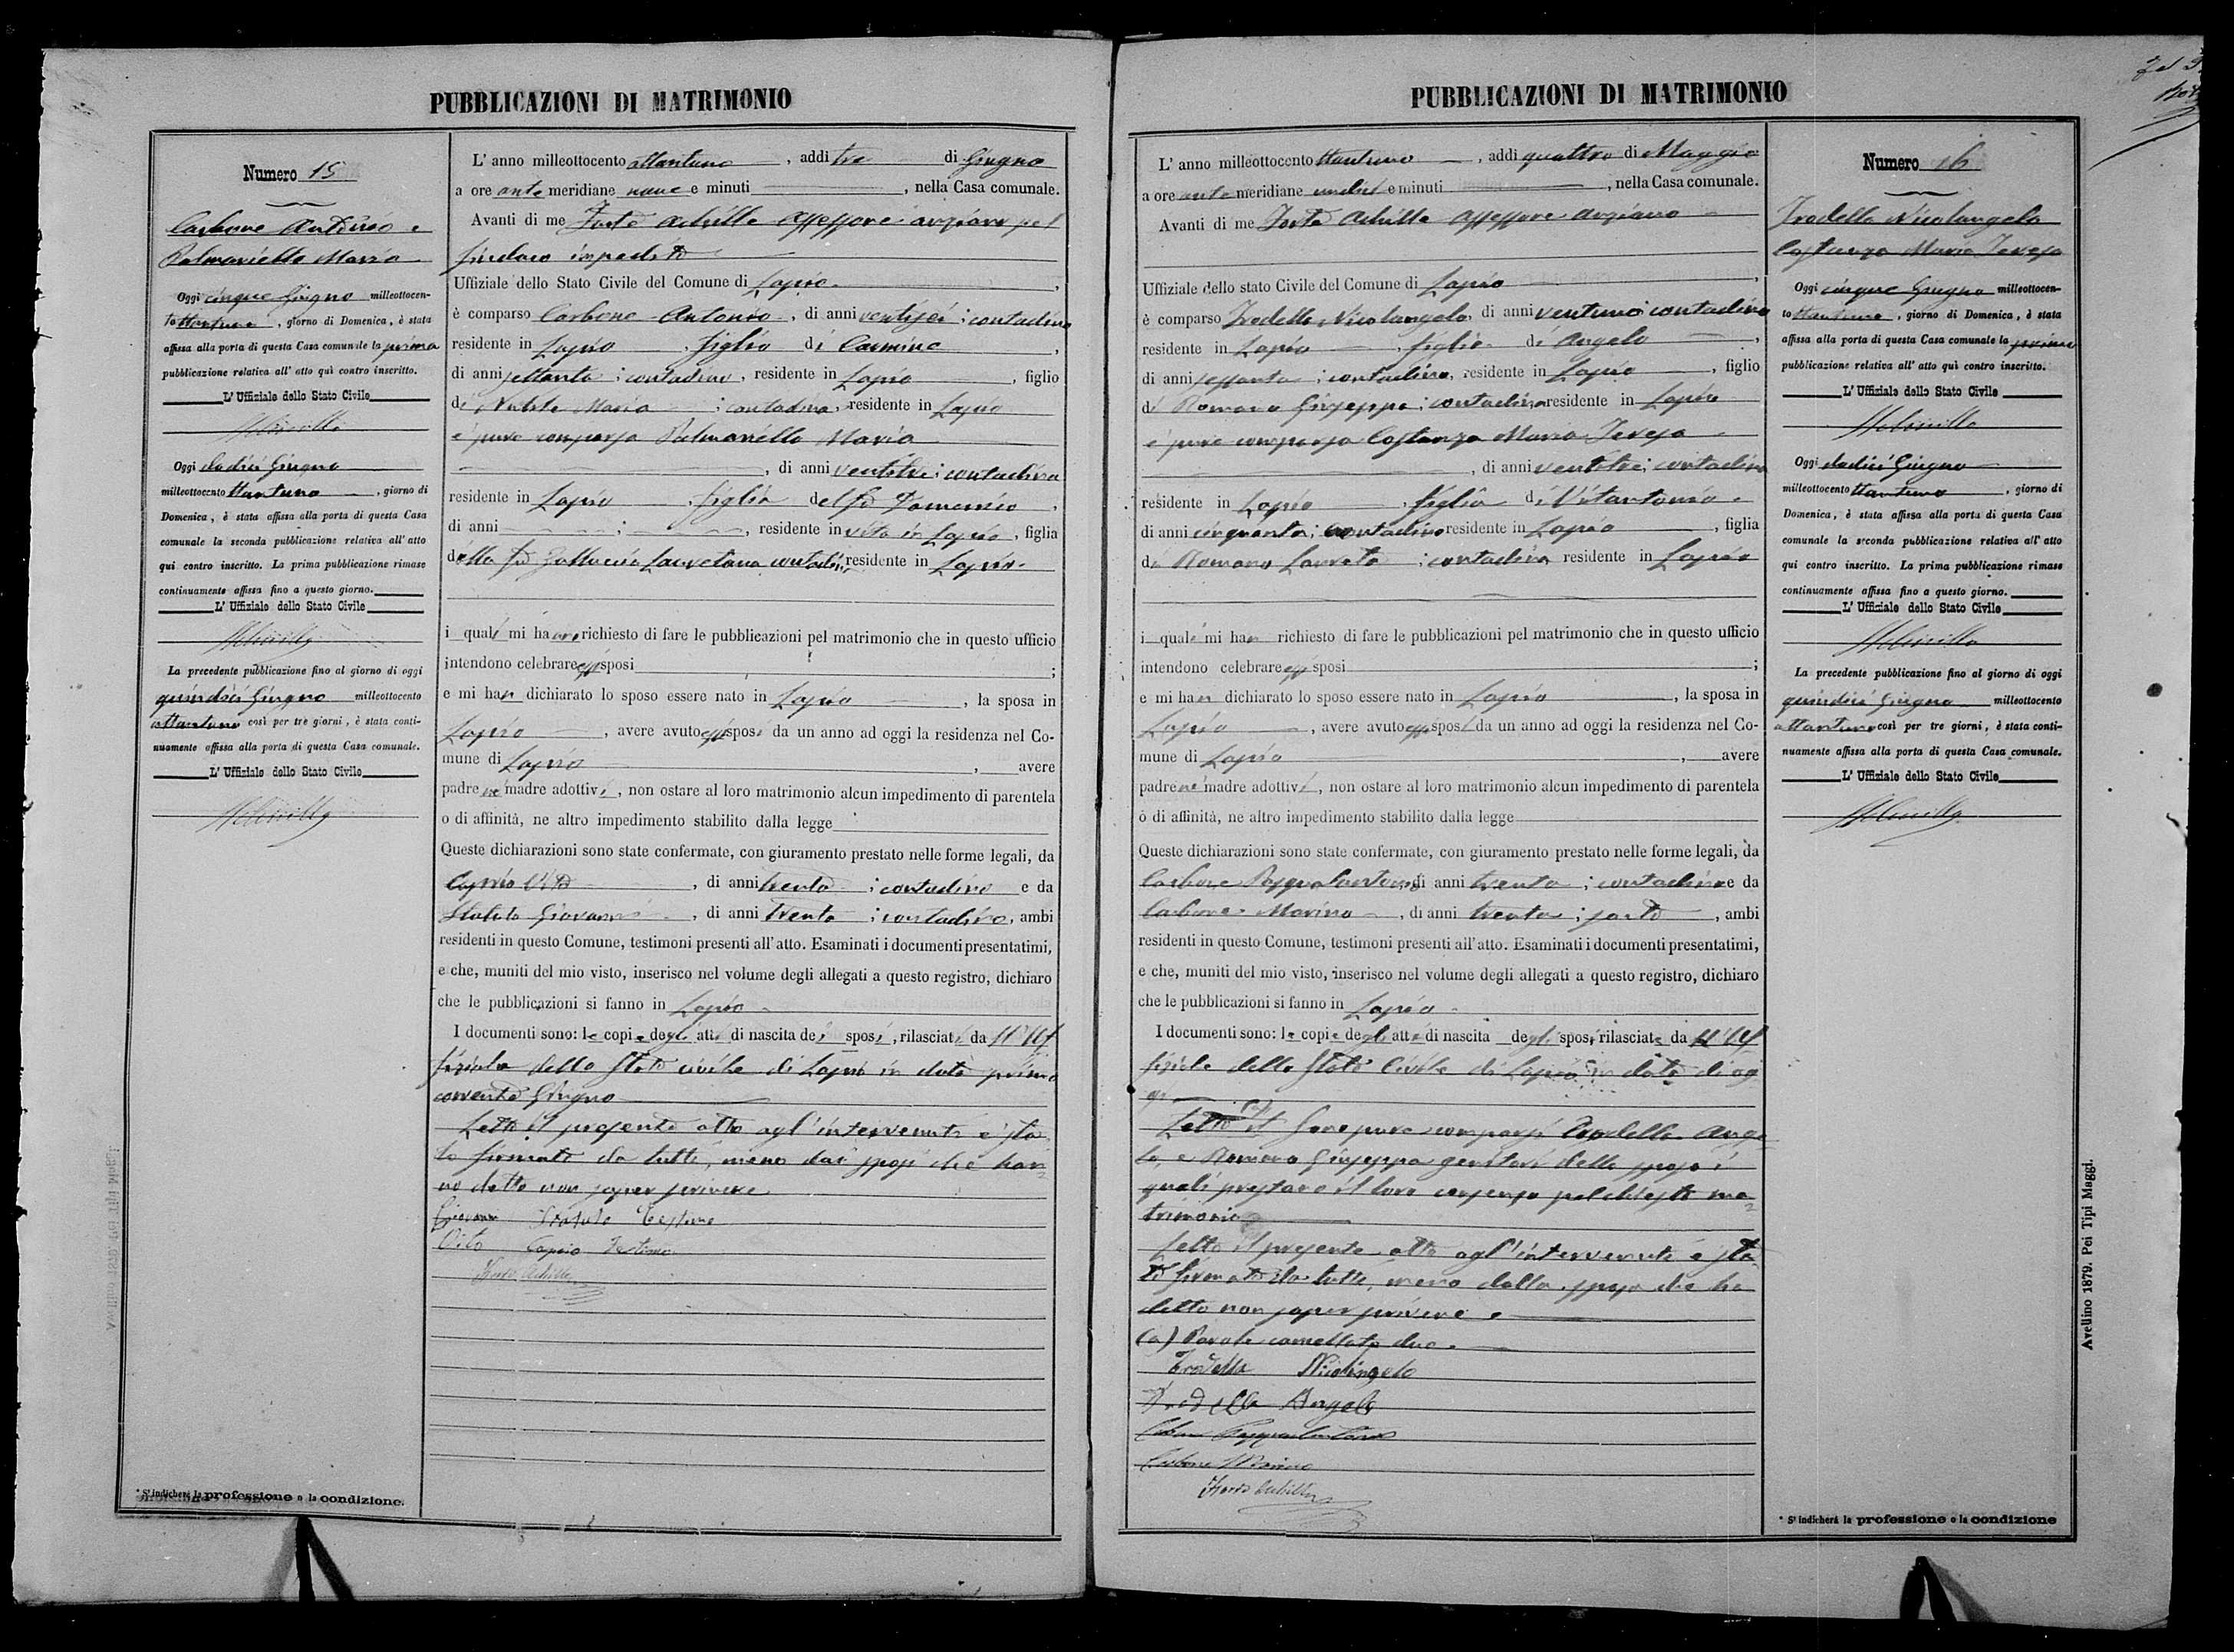 PUBBLICAZIONI DI MATRIMONIO
Numero 15
Carbone Antonio e
Palmariello Maria
Oggi cinque Giugno milleottocen-
to ttantuno, giorno di Domenica, è stata
affissa alla porta di questa Casa comunale la prima
pubblicazione relativa all' atto quì contro inscritto.
L' Uffiziale dello Stato Civile
Oggi dodici Giugno
milleottocento ttantuno, giorno di
Domenica, è stata affissa alla porta di questa Casa
comunale la seconda pubblicazione relativa all' atto
qui contro inscritto. La prima pubblicazione rimase
continuamente affissa fino a questo giorno.
L' Uffiziale dello Stato Civile
La precedente pubblicazione fino al giorno di oggi
quindici Giugno milleottocento
ottantuno così per tre giorni, è stata conti-
nuamente affissa alla porta di questa Casa comunale.
L' Uffiziale dello Stato Civile
* S' indicherà la professione o la condizione.
L' anno milleottocento ottantuno, addì tre di Giugno
a ore ante meridiane nove e minuti , nella Casa comunale.
Avanti di me Forte Achille Assessore anziano pel
Sindaco impedito
Uffiziale dello Stato Civile del Comune di Lapio
è comparso Carbone Antonio, di anni ventisei; contadino
residente in Lapio, figlio di Carmine,
di anni settanta; contadino, residente in Lapio, figlio
di Nubile Maria; contadina, residente in Lapio
e pure comparsa Palmariello Maria
, di anni ventitre; contadina
residente in Lapio, figlia del fu Domenico,
di anni ; , residente in vita in Lapio, figlia
della fu Gallucci Lauretana contadina, residente in Lapio.
i quali mi hanno richiesto di fare le pubblicazioni pel matrimonio che in questo ufficio
intendono celebrare essi sposi ;
e mi han dichiarato lo sposo essere nato in Lapio, la sposa in
Lapio, avere avuto essi sposi da un anno ad oggi la residenza nel Co-
mune di Lapio, avere
padre nè madre adottivi, non ostare al loro matrimonio alcun impedimento di parentela
o di affinità, ne altro impedimento stabilito dalla legge
Queste dichiarazioni sono state confermate, con giuramento prestato nelle forme legali, da
Caprio Vito, di anni trenta; contadino e da
Statuto Giovanni, di anni trenta; contadino, ambi
residenti in questo Comune, testimoni presenti all' atto. Esaminati i documenti presentatimi,
e che, muniti del mio visto, inserisco nel volume degli allegati a questo registro, dichiaro
che le pubblicazioni si fanno in Lapio
I documenti sono: le copie degli atti di nascita dei sposi, rilasciati da ll' Uf
fiziale dello Stato civile di Lapio in data primo
corrente Giugno
Letto il presente atto agl' intervenuti è sta
to firmato da tutti, meno dai sposi che han
no detto non saper scrivere
Giovanni Statuto Testimone
Vito Caprio Testimone
Forte Achille
PUBBLICAZIONI DI MATRIMONIO
L' anno milleottocento ttantuno, addì quattro di Maggio
a ore ante meridiane undici e minuti , nella Casa comunale.
Avanti di me Forte Achille Assessore anziano
Uffiziale dello stato Civile del Comune di Lapio,
è comparso Trodella Nicolangelo, di anni ventuno; contadino
residente in Lapio, figlio di Angelo,
di anni sessanta; contadino, residente in Lapio, figlio
di Romano Giuseppa; contadina residente in Lapio
e pure comparsa Costanza Maria Teresa
, di anni ventitre; contadina
residente in Lapio, figlia di Vitantonio
di anni cinquanta; contadino residente in Lapio, figlia
di Romano Laureta; contadina residente in Lapio
i quali mi han richiesto di fare le pubblicazioni pel matrimonio che in questo ufficio
intendono celebrare essi sposi ;
e mi han dichiarato lo sposo essere nato in Lapio, la sposa in
Lapio, avere avuto essi sposi da un anno ad oggi la residenza nel Co-
mune di Lapio, avere
padre nè madre adottivi, non ostare al loro matrimonio alcun impedimento di parentela
o di affinità, ne altro impedimento stabilito dalla legge
Queste dichiarazioni sono state confermate, con giuramento prestato nelle forme legali, da
Carbone Pasqualantonio, di anni trenta; contadino e da
Carbone Marino, di anni trenta; sarto, ambi
residenti in questo Comune, testimoni presenti all' atto. Esaminati i documenti presentatimi,
e che, muniti del mio visto, inserisco nel volume degli allegati a questo registro, dichiaro
che le pubblicazioni si fanno in Lapio
I documenti sono: le copie degli atti di nascita degli sposi, rilasciate da ll' Uf
fiziale dello Stato Civile di Lapio in data di og
gi
Letto il (a) Sono pure comparsi Trodella Ange
lo, e Romano Giuseppa genitori dello sposo i
quali prestano il loro consenso pel chiesto ma
trimonio
Letto il presente atto agl' intervenuti è sta
to firmato da tutti, meno dalla sposa che ha
detto non saper scrivere
(a) Parole cancellate due.
Trodella Nicolangelo
Trodella Angelo
Carbone Pasqualantonio
Carbone Marino
Forte Achille
Numero 16
Trodella Nicolangelo
Costanza Maria Teresa
Oggi cinque Giugno milleottocen-
to ttantuno, giorno di Domenica, è stata
affissa alla porta di questa Casa comunale la prima
pubblicazione relativa all' atto quì contro inscritto.
L' Uffiziale dello Stato Civile
Oggi dodici Giugno
milleottocento ttantuno, giorno di
Domenica, è stata affissa alla porta di questa Casa
comunale la seconda pubblicazione relativa all' atto
qui contro inscritto. La prima pubblicazione rimase
continuamente affissa fino a questo giorno.
L' Uffiziale dello Stato Civile
La precedente pubblicazione fino al giorno di oggi
quindici Giugno milleottocento
ottantuno così per tre giorni, è stata conti-
nuamente affissa alla porta di questa Casa comunale.
L' Uffiziale dello Stato Civile
* S' indicherà la professione o la condizione
Avellino 1879. Pei Tipi Maggi.